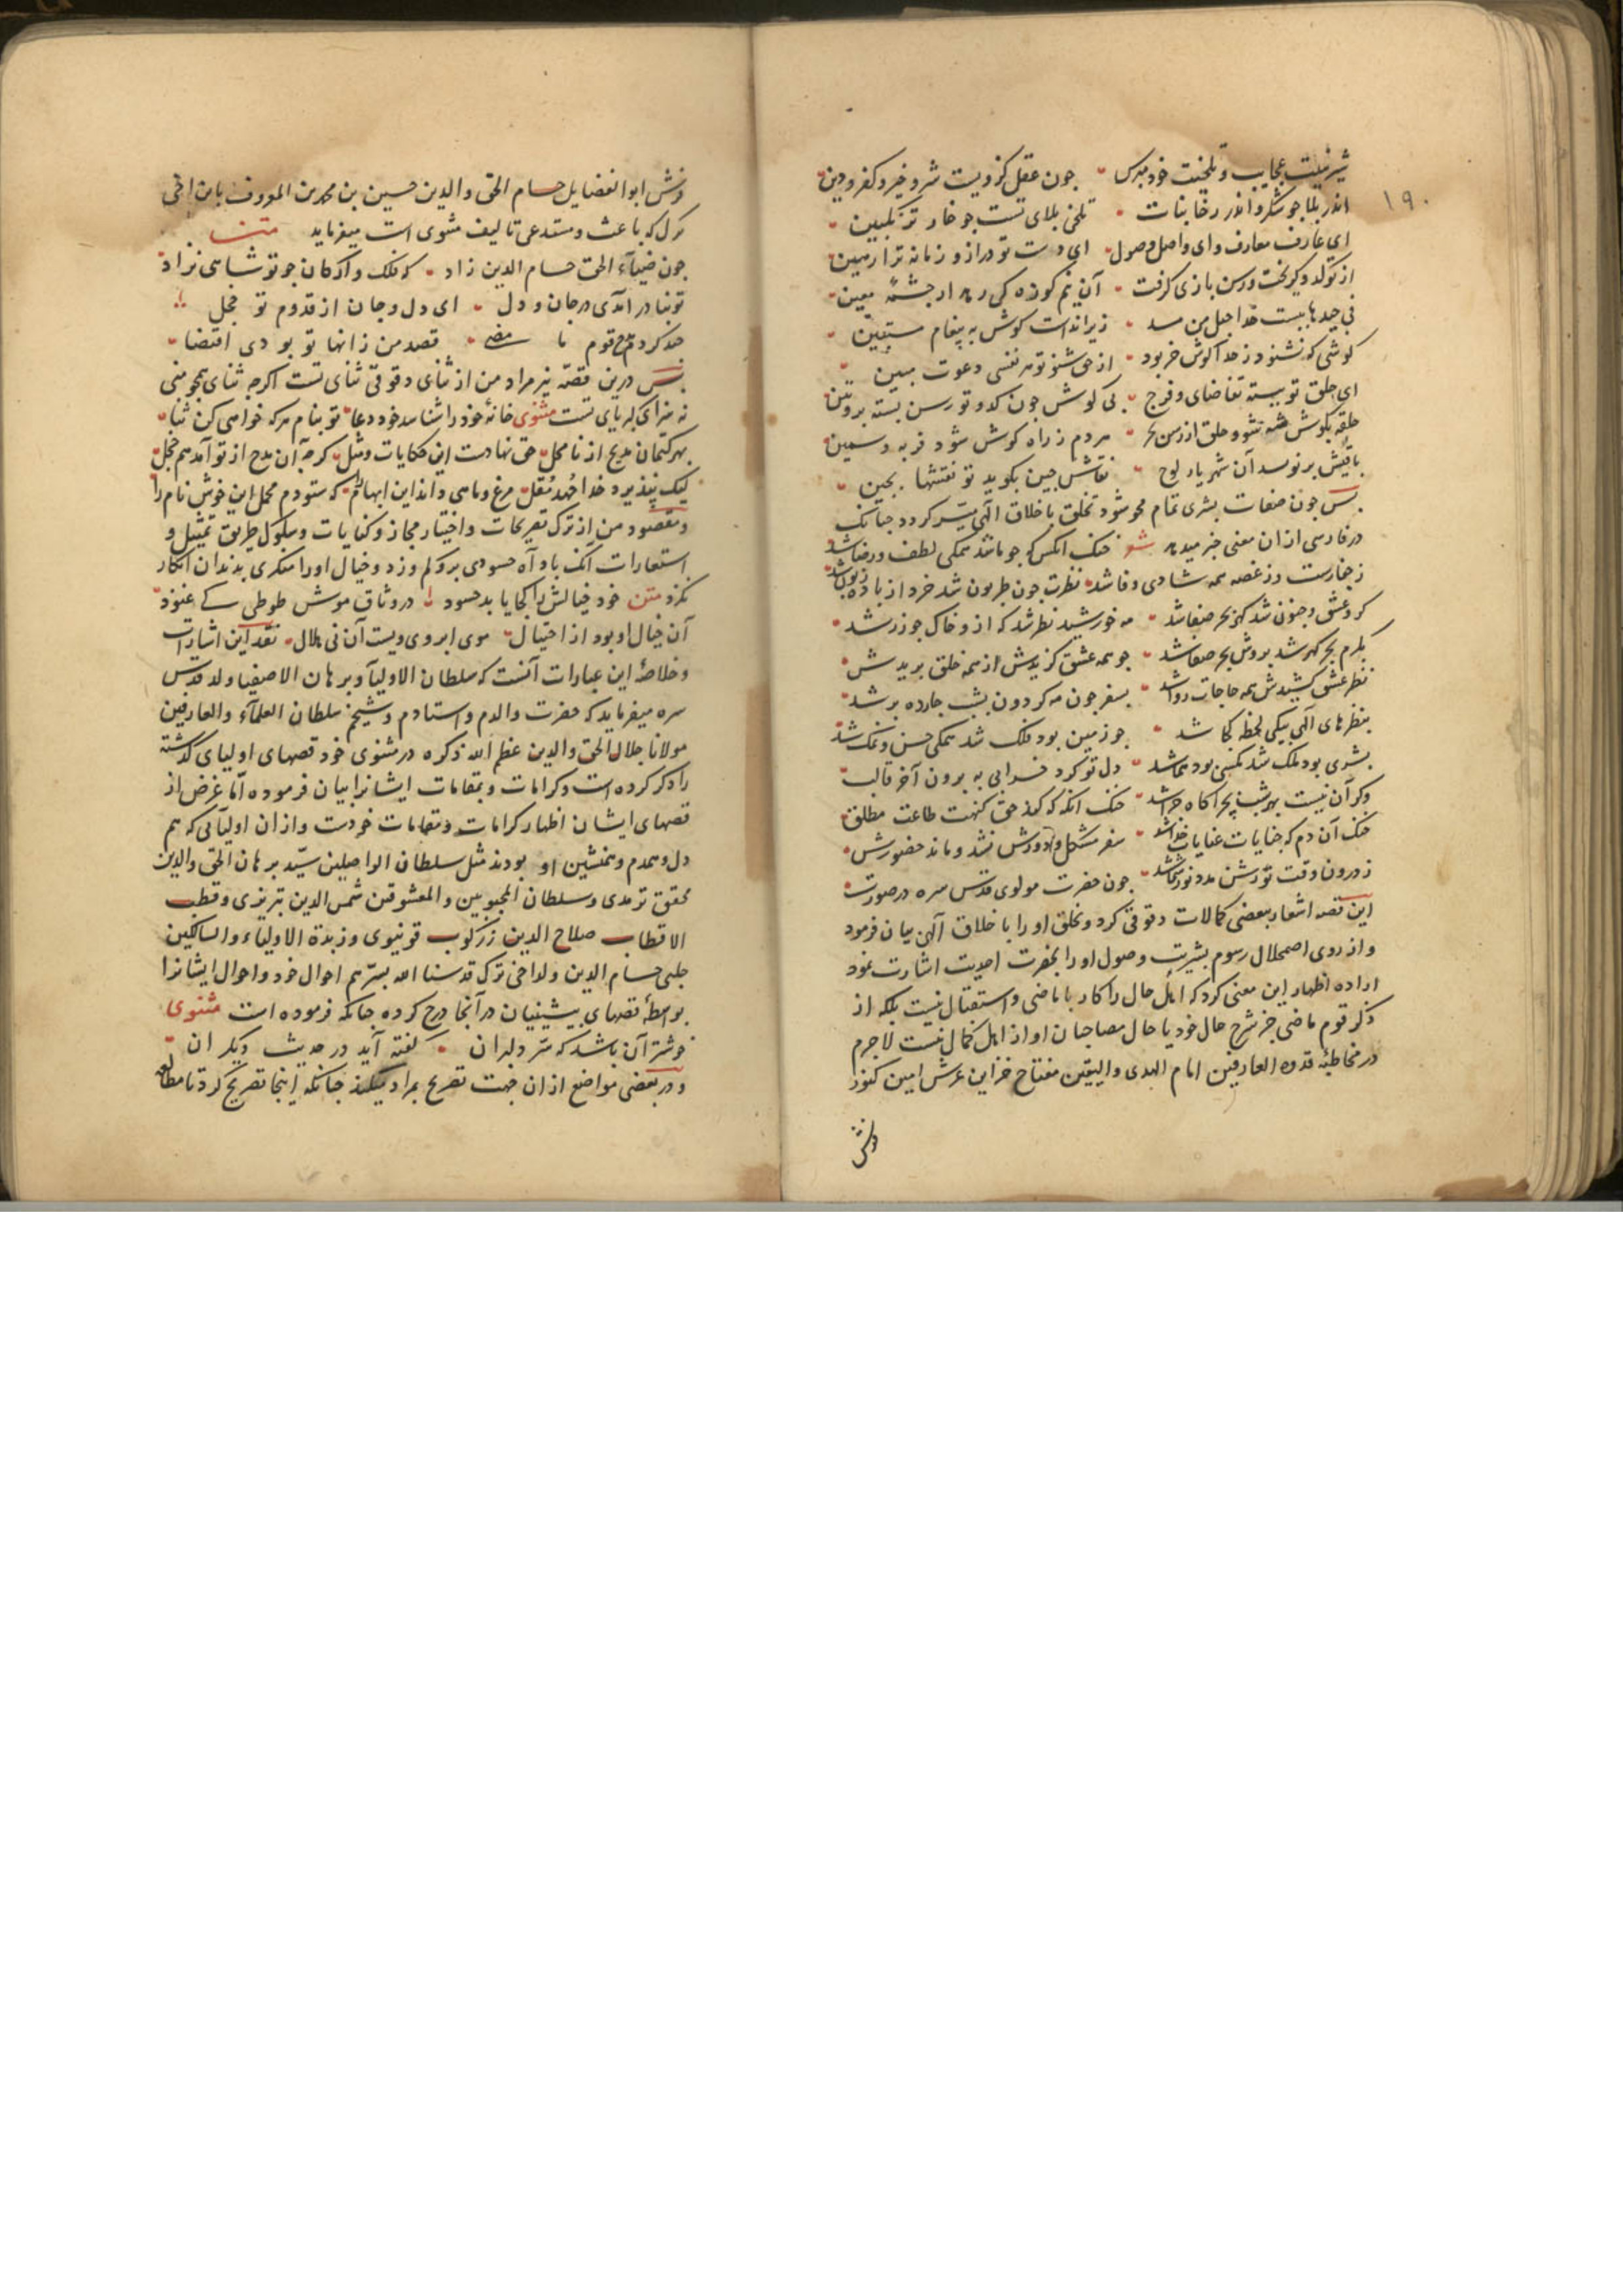 ۱۹۰
شیرینیت عجایب و تلخیت خود مپرس جون عقل کزویست شر و خیر و کفر و دین
اندر بلا جو شکر و اندر رخا نبات تلخی بلای تست جو خار ترنکبین
ای عارف معارف و ای واصل وصول ای دست تو دراز و زمانه ترا رهین
از تو کدو کریخت رسن بازی کرفت آن نم کوزه کی رهد از جشمهٔ معین
فی جیدها ببست خدا حبل من مسد زیرا نداشت کوش به پیغام مستبین
کوشی که نشنود ز خدا کوش خر بود از حق شنو تو هر نفسی دعوت مبین
ای حلق تو ببسته تقاضای و فرج بی کوش جون کدو تو رسن بسته بر وتین
حلقه بکوش شه شو و حلق از رسن بخر مردم ز راه کوش شود فربه و سمین
باقیش برنویسد آن شهریار لوح نقاش جین بکوید تو نقشها بجین
بس جون صفات بشری تمام محو شود تخلق باخلاق الهی میسر کردد جنانک
در فارسی ازان معنی خبر میدهد شعر خنک آنکس که جو ما شد همکی لطف و رضا شد
ز جفا رست و ز غصه همه شادی و وفا شد نظرت جون طربون شد خرد از باده زبون شد
کرو عشق و جنون شد کهر بحر صفا شد مه خورشید نظر شد که ازو خاک جو زر شد
بکرم بحر کهر شد بروش بحر صفا شد جو همه عشق کزیدش از همه خلق بریدش
نظر عشق کشیدش همه حاجات روا شد بسفر جون مه کردون بشب جارده بر شد
بنظرهای الهی بیکی لحظه کجا شد جو زمین بود فلک شد همکی حسن و نمک شد
بشری بود ملک شد مکسی بود هما شد دل تو کرد خرابی به برون آخر قالب
وکر آن نیست بهر شب بجراکاه جرا شد خنک آنکه که کند حق کنهت طاعت مطلق
خنک آن دم که جنایات عنایات خدا شد سفر مشکل و دورش نشد و ماند حضورش
ز درون وقت تو رشن مدد نور شما شد جون حضرت مولوی قدس سره در صورت
این قصه اشعار ببعضی کمالات دقوقی کرد و تخلق او را باخلاق الهی بیان فرمود
و از روی اضمحلال رسوم بشریت وصول او را بحضرت احدیت اشارت نمود
اراده اظهار این معنی کرد که اهل حال را کار با ماضی و استقبال نیست بلکه از
ذکر قوم ماضی جز شرح حال خود یا حال مصاحبان او از اهل کمال نیست لاجرم
در مخاطبهٔ قدوه العارفین امام الهدی والیقین مفتاح خزاین عرش امین کنوز
فرش
فرش ابو الفضایل حسام الحق والدین حسین بن محمد بن المعروف بابن اخی
ترک که باعث و مستدعی تالیف مثنوی است میفرماید متن
جون ضیاء الحق حسام الدین زاد که فلک و ارکان جو تو شاهی نزاد
تو بنادر آمدی در جان و دل ای دل و جان از قدوم تو خجل
جند کردم مدح قوم ما مضی قصد من زانها تو بودی اقتضا
بس درین قصه نیز مراد من از ثنای دقوقی ثنای تست اکرجه ثنای همجو منی
نه سزای کبریای تست مثنوی خانهٔ خود را شناسد خود دعا تو بنام هرکه خواهی کن ثنا
بهر کتمان مدیح از نا محل حق نهادست این حکایات و مثل کرجه آن مدح از تو آمد هم خجل
لیک بپذیرد خدا جهد مقل مرغ و ماهی داند این ابهام که ستودم مجمل این خوش نام را
و مقصود من از ترک تصریحات و اختیار مجاز و کنایات و سلوک طریق تمثیل و
استعارات آنک باد آه حسودی برو کم وزد و خیال او را منکری بدندان انکار
نکزد متن خود خیالش را کجا یابد حسود در وثاق موش طوطی کی غنود
آن خیال او بود از احتیال موی ابروی ویست آن نی هلال نقد این اشارات
و خلاصهٔ این عبارات آنست که سلطان الاولیا و برهان الاصفیا ولد قدس
سره میفرماید که حضرت والدم و استادم و شیخم سلطان العلماء والعارفین
مولانا جلال الحق والدین عظم الله ذکره در مثنوی خود قصهای اولیای کذشته
را ذکر کرده است و کرامات و بمقامات ایشانرا بیان فرموده اما غرض از
قصهای ایشان اظهار کرامات و مقامات خودست و ازان اولیائی که هم
دل و همدم و همنشین او بودند مثل سلطان الواصلین سید برهان الحق والدین
محقق ترمدی و سلطان المحبوبین والمعشوقین شمس الدین تبریزی و قطب
الاقطاب صلاح الدین زرکوب قونیوی و زبدة الاولیاء والسالکین
جلبی حسام الدین ولد اخی ترک قدسنا الله بسرهم احوال خود و احوال ایشانرا
بواسطهٔ قصهای پیشینیان در آنجا درج کرده جنانکه فرموده است مثنوی
خوشتر آن باشد که سر دلبران کفته آید در حدیث دیکران
و در بعضی مواضع ازان جهت تصریح بمراد میکند جنانکه اینجا تصریح کرد تا مطالعه